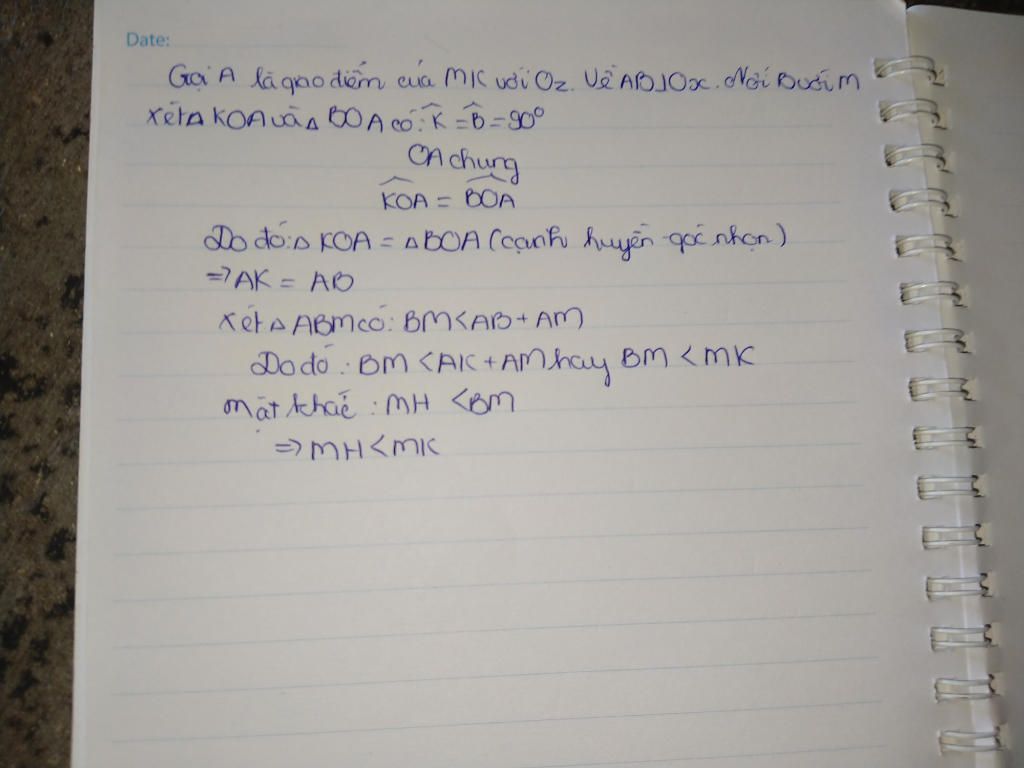 Date:
Gọi A là giao điểm của MK với Oz. Vẽ AB⊥Ox. Nối B với M
Xét △ KOA và △ BOA có: K̂ = B̂ = 90°
OA chung
K͡OA = B͡OA
Do đó: △ KOA = △ BOA (cạnh huyền - góc nhọn)
⇒ AK = AB
Xét △ ABM có: BM < AB + AM
Do đó : BM < AK + AM hay BM < MK
Mặt khác : MH < BM
⇒ MH < MK